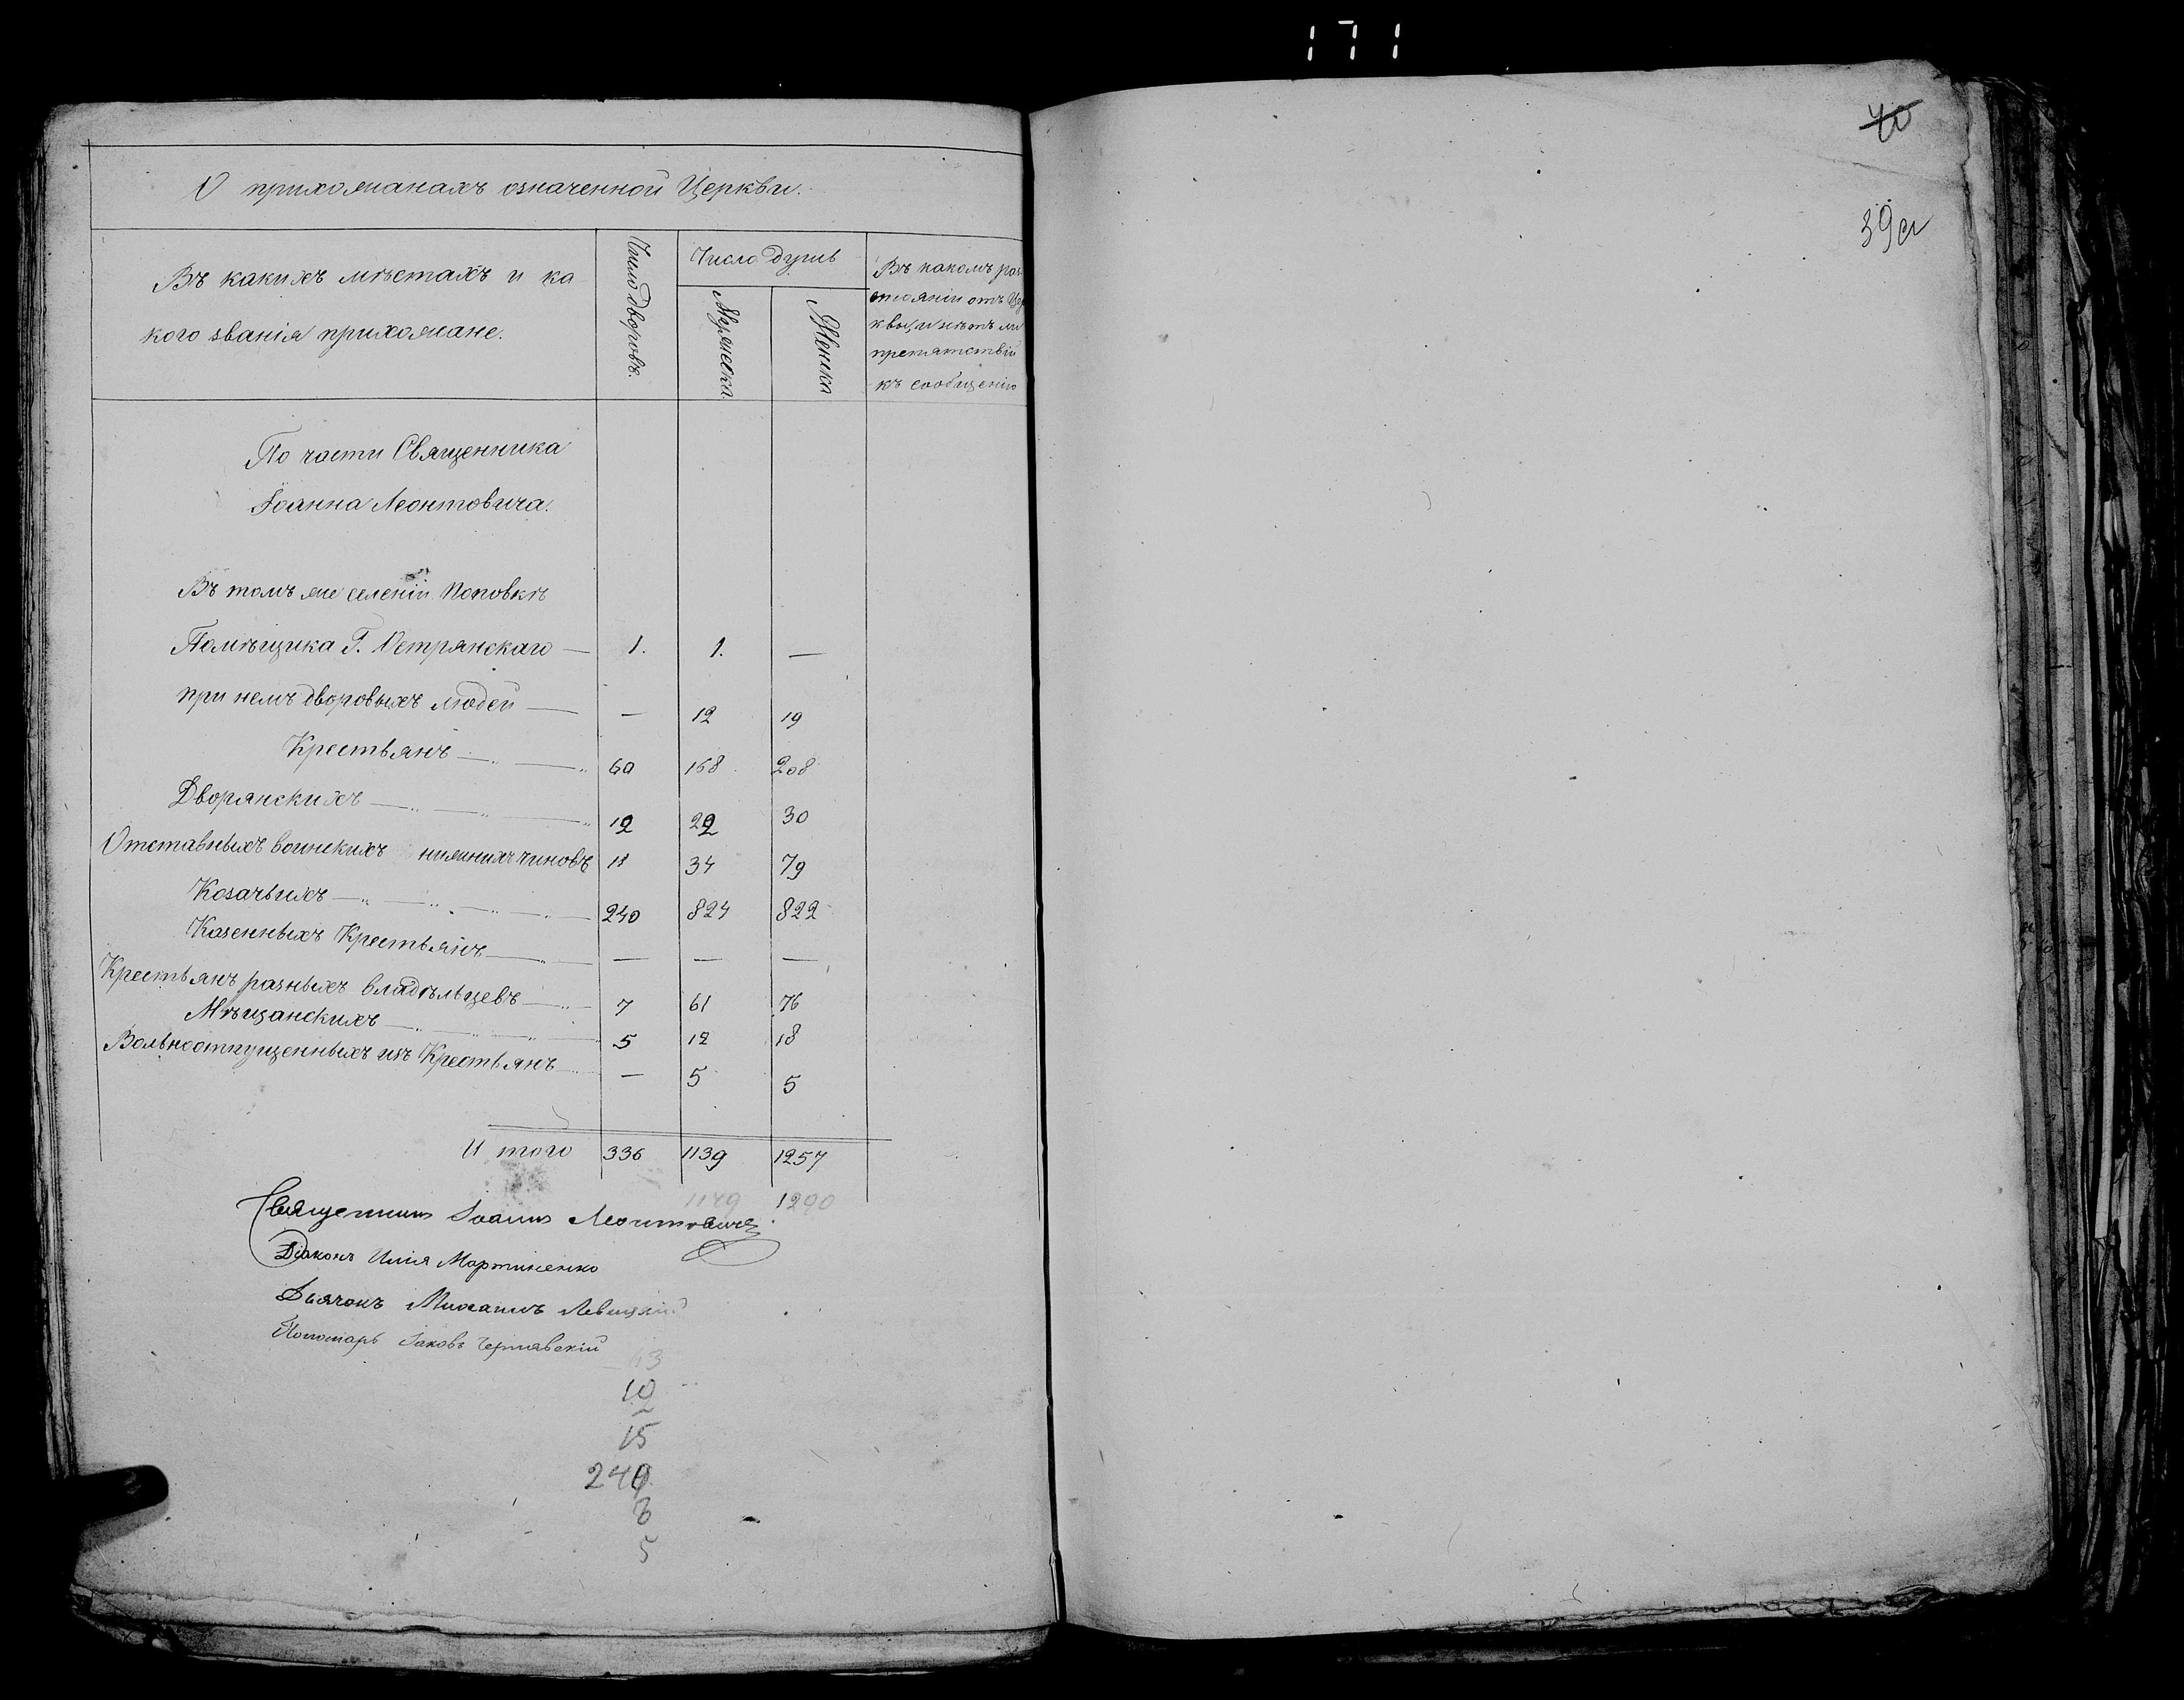 171
40
39 об
О прихожанахъ означенной Церкви.
Въ какихъ мѣстахъ и ка
кого званія прихожане.
Число дворовъ.
Число душъ
Мужеска
Женска
Въ какомъ раз
стояніи отъ Цер
квы, и нѣтъ ли
препятствій
къ сообщенію
По части Священника
Іоанна Леонтовича.
Въ томъ же селеніи Поповкѣ
Помѣщика Г. Острянскаго — 1. 1. —
при немъ дворовыхъ людей — — 12 19
Крестьянъ — 60 168 208
Дворянскихъ — 12 22 30
Отставныхъ воинскихъ нижнихъ чиновъ 11 34 79
Козачьихъ — 240 824 822
Казенныхъ Крестьянъ — — — —
Крестьянъ разныхъ владѣльцевъ — 7 61 76
Мѣщанскихъ — 5 12 18
Вольноотпущенныхъ изъ Крестьянъ — — 5 5
И того 336 1139 1257
1149 1290
Священникъ Іоаннъ Леонтовичъ
Діаконъ Илія Мартиненко
Дьячокъ Михаилъ Левицкій
Пономарь Іаковъ Чернявскій
63
12
15
240
8
5